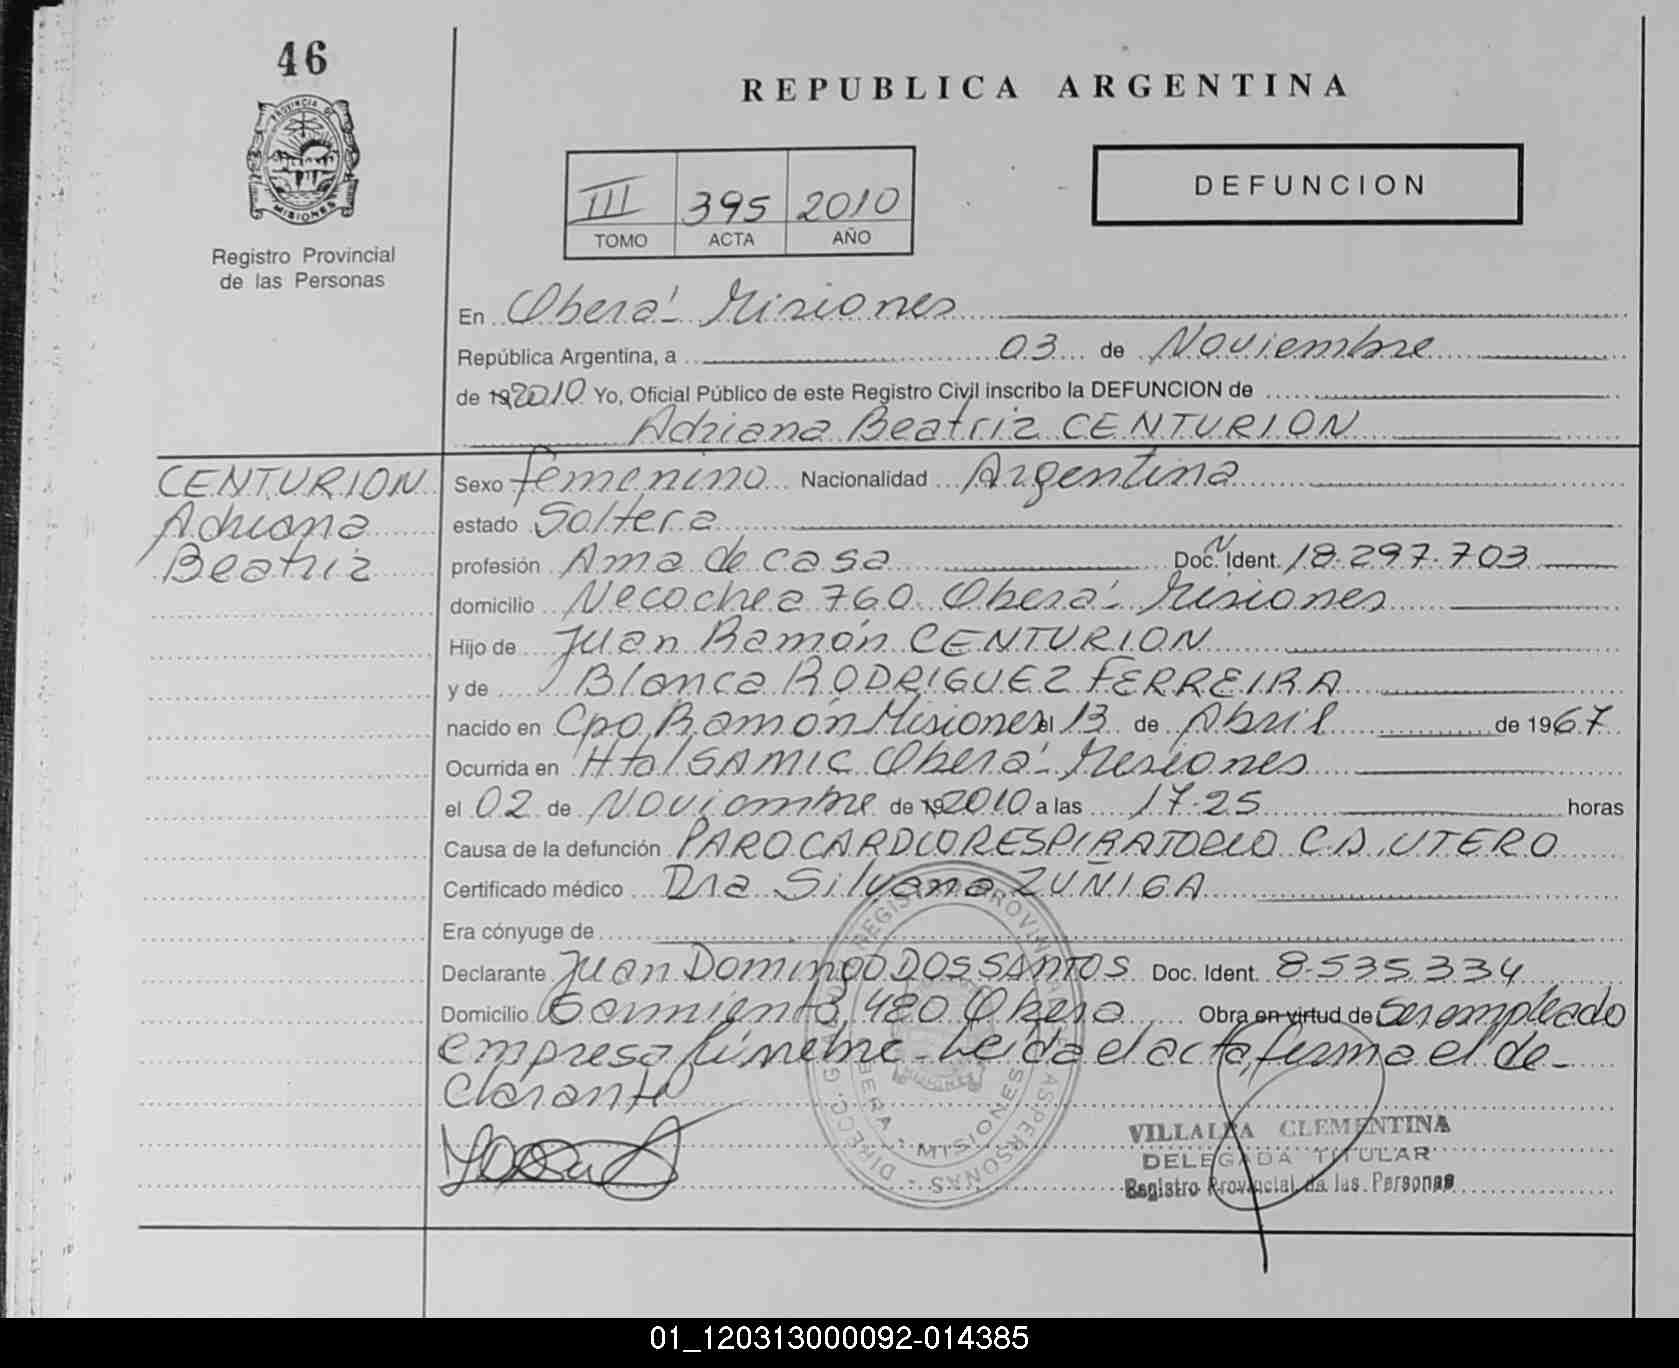 46
PROVINCIA DE
MISIONES
Registro Provincial
de las Personas
REPUBLICA ARGENTINA
III 395 2010
TOMO ACTA AÑO
DEFUNCION
En Oberá - Misiones
República Argentina, a 03 de Noviembre
de 192010 Yo, Oficial Público de este Registro Civil inscribo la DEFUNCION de
Adriana Beatriz CENTURION
CENTURION
Adriana
Beatriz
Sexo femenino Nacionalidad Argentina
estado Soltera
profesión Ama de casa Doc. Ident. 18.297.703
domicilio Necochea 760 Oberá - Misiones
Hijo de Juan Ramón CENTURION
y de Blanca RODRIGUEZ FERREIRA
nacido en Cpo Ramón Misiones el 13 de Abril de 1967
Ocurrida en Htal SAMIC Oberá - Misiones
el 02 de Noviembre de 192010 a las 17.25 horas
Causa de la defunción PARO CARDIORESPIRATORIO CA UTERO
Certificado médico Dra Silvana ZUÑIGA
Era cónyuge de
Declarante Juan Domingo DOS SANTOS Doc. Ident. 8.535.334
Domicilio Sarmiento 480 Obera Obra en virtud de ser empleado
empresa fúnebre - Leída el acta, firma el de-
clarante
VILLALBA CLEMENTINA
DELEGADA TITULAR
Registro Provincial de las Personas
01_120313000092-014385